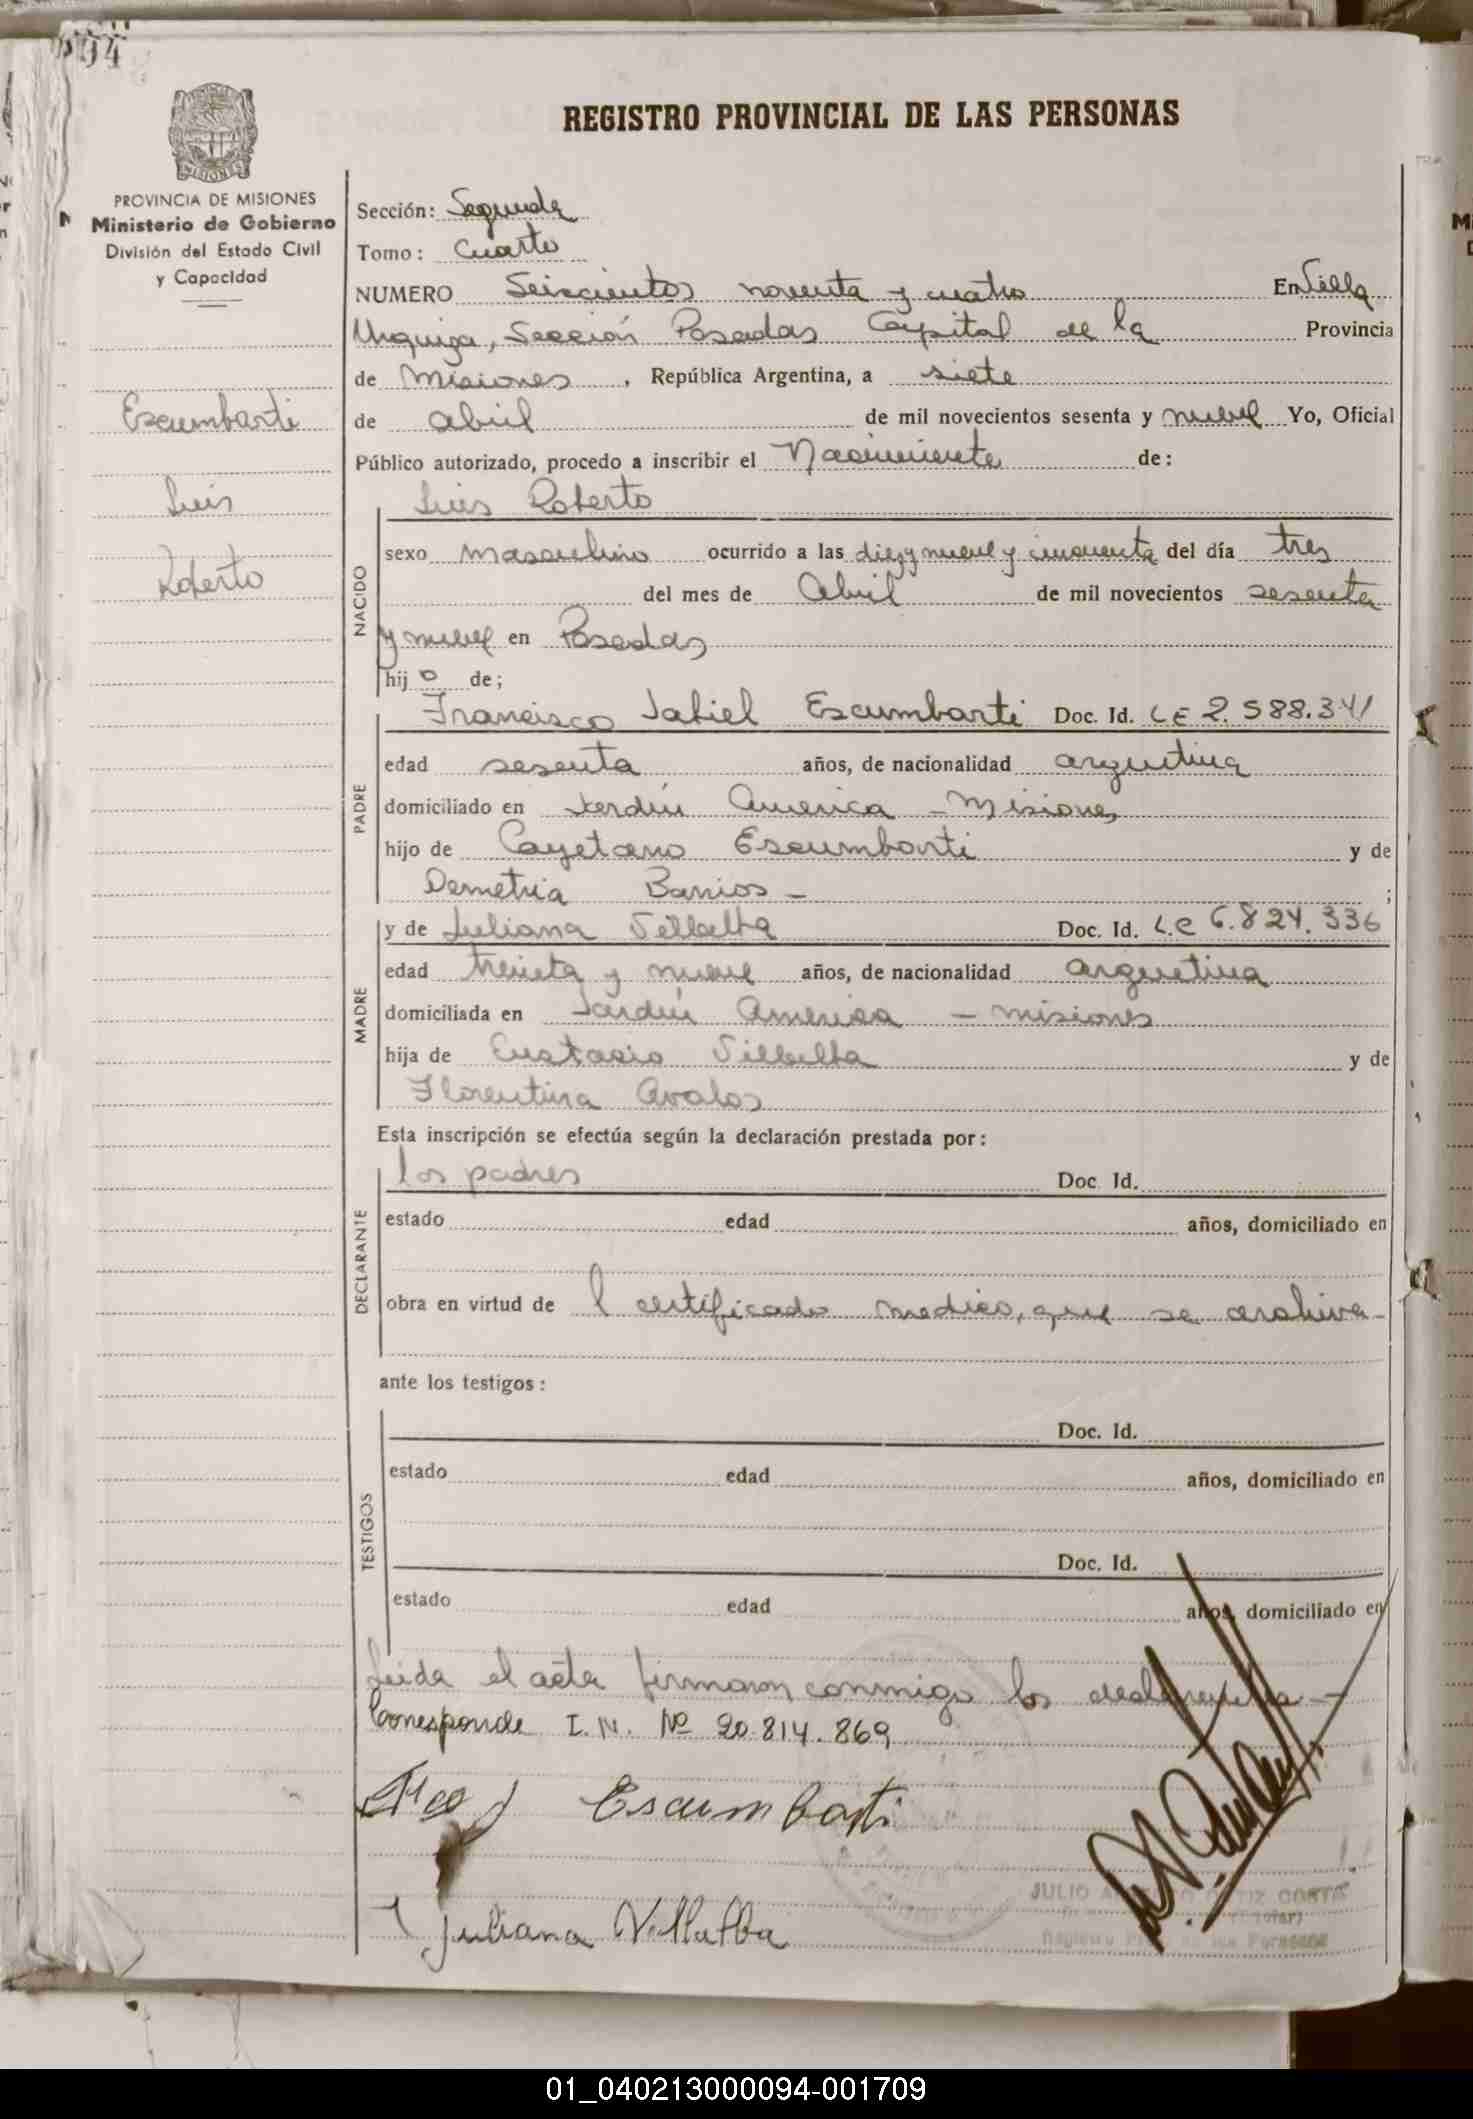 94
REGISTRO PROVINCIAL DE LAS PERSONAS
MISIONES
PROVINCIA DE MISIONES
Ministerio de Gobierno
División del Estado Civil
y Capacidad
Escumbarti
Luis
Roberto
Sección: Segunda
Tomo: Cuarto
NUMERO Seiscientos noventa y cuatro En Villa
Urquiza, Sección Posadas Capital de la Provincia
de Misiones, República Argentina, a siete
de abril de mil novecientos sesenta y nueve Yo, Oficial
Público autorizado, procedo a inscribir el Nacimiento de:
Luis Roberto
NACIDO
sexo masculino ocurrido a las diez y nueve y cincuenta del día tres
del mes de Abril de mil novecientos sesenta
y nueve en Posadas
hijo de;
Francisco Jabiel Escumbarti Doc. Id. LE 2.588.341
PADRE
edad sesenta años, de nacionalidad argentina
domiciliado en Jardín America - Misiones
hijo de Cayetano Escumbarti y de
Demetria Barrios - ;
MADRE
y de Juliana Villalba Doc. Id. L.C 6.824.336
edad treinta y nueve años, de nacionalidad argentina
domiciliada en Jardín America - misiones
hija de Eustasio Villalba y de
Florentina Avalos
Esta inscripción se efectúa según la declaración prestada por:
DECLARANTE
los padres Doc. Id.
estado edad años, domiciliado en
obra en virtud de l certificado medico, que se archiva-
ante los testigos:
TESTIGOS
Doc. Id.
estado edad años, domiciliado en
Doc. Id.
estado edad años, domiciliado en
Leida el acta firmaron conmigo los -
Corresponde I.N. Nº 20.814.869
Fco J Escumbarti
JULIO ORTIZ COSTA
Juliana Villalba
01_040213000094-001709